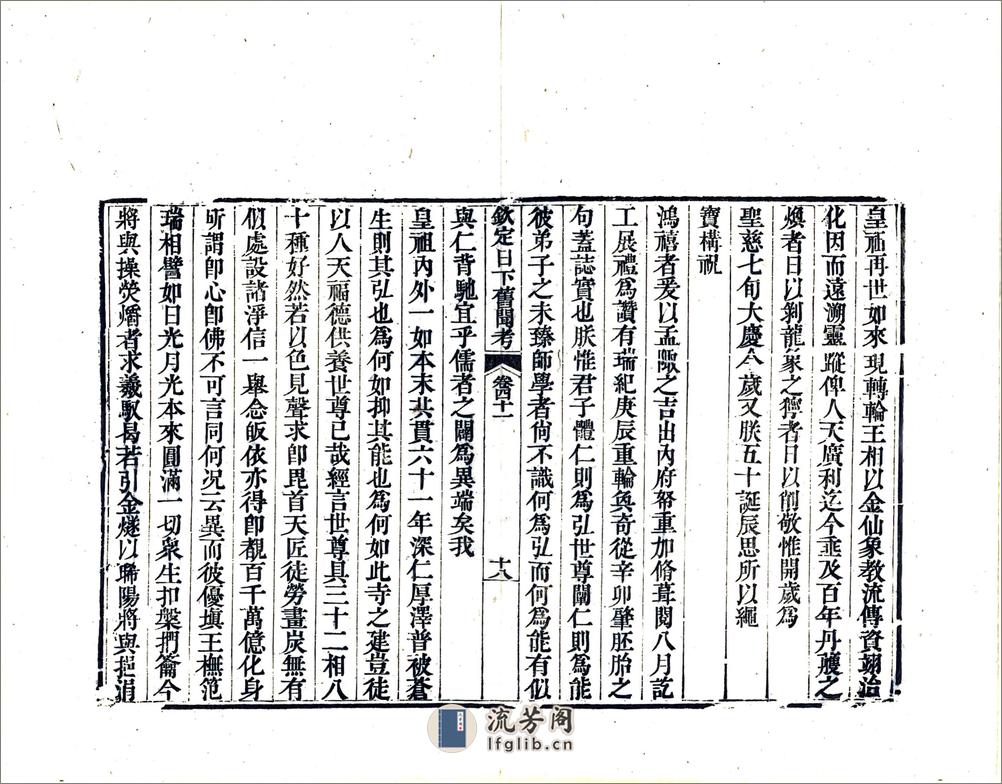 皇祖再世如來現轉輪王相以金仙象教流傳資翊治
化因而遠溯靈蹤俾人天廣利迄今埀及百年丹雘之
煥者日以剝龍象之獰者日以削敬惟開歲爲
聖慈七旬大慶今歲又朕五十誕辰思所以繩
寶構祝
鴻禧者爰以孟陬之吉出內府帑重加脩葺閱八月訖
工展禮爲讚有瑞紀庚辰重輪奐奇從辛卯肇胚胎之
句蓋誌實也朕惟君子體仁則爲弘世尊闡仁則爲能
彼弟子之未臻師學者尙不識何爲弘而何爲能有似
欽定日下舊聞考 卷四十一 十八
與仁背馳宜乎儒者之闢爲異端矣我
皇祖內外一如本末共貫六十一年深仁厚澤普被蒼
生則其弘也爲何如抑其能也爲何如此寺之建豈徒
以人天福德供養世尊已哉經言世尊具三十二相八
十種好然若以色見聲求卽毘首天匠徒勞畫炭無有
似處設諸淨信一舉念皈依亦得卽覩百千萬億化身
所謂卽心卽佛不可言同何况云異而彼優塡王橅范
瑞相譬如日光月光本來圓滿一切衆生扣槃捫籥今
將與操熒爝者求羲馭曷若引金燧以聯陽將與挹涓
流芳阁
lfglib.cn